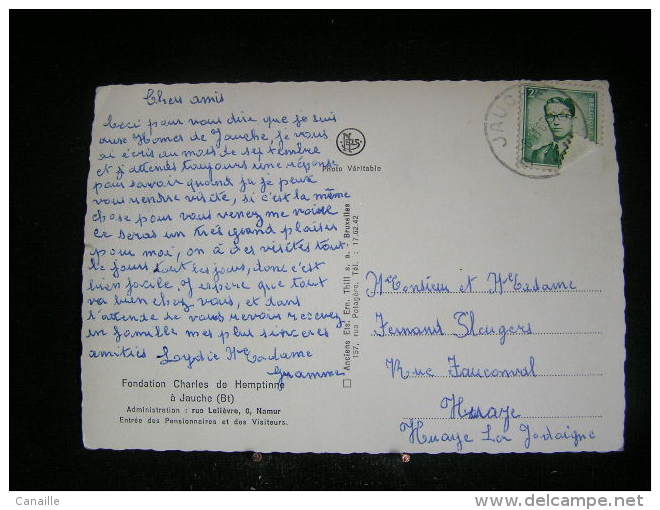 Chers amis
Ceci pour vous dire que je suis
aux Homes de Jauche, je vous
ai écris au mois de septembre
et j'attends toujours une réponse
pour savoir quand je peux
vous rendre visite, si c'est la même
chose pour vous venez me voir
ce seras un très grand plaisir
pour moi, on à des visites tout
le jours tout les jours, donc c'est
bien facile. J'espère que tout
va bien chez vous, et dans
l'attende de vous revoir recevez
en famille mes plus sincères
amitiés Madame
Fondation Charles de Hemptinne
à Jauche (Bt)
Administration : rue Lelièvre, 6, Namur
Entrée des Pensionnaires et des Visiteurs.
NELS
Photo Véritable
Anciens Ets. Ern. Thill s. a. Bruxelles
157, rue Potagère. Tél. : 17.62.42
JAUCHE
Monsieur et Madame
Fernand
Rue
Huaye
Huaye La
Canaille
www.delcampe.net